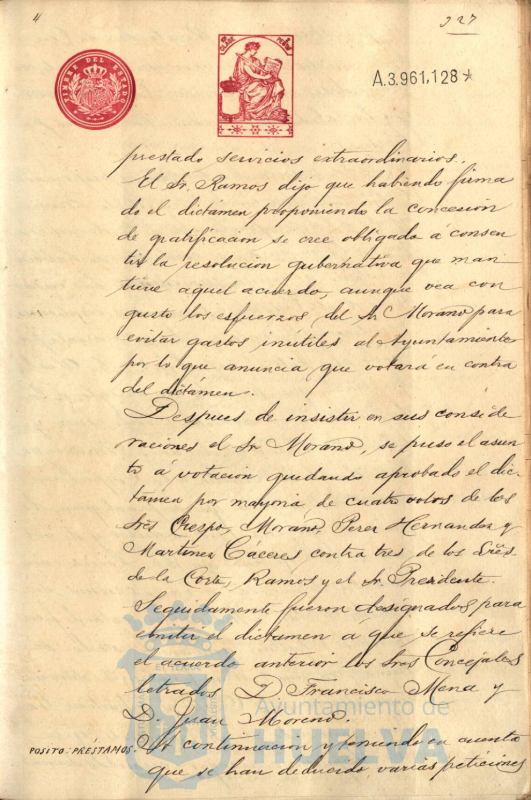 4
227
TIMBRE DEL ESTADO
A.3.961,128*
prestado servicios extraordinarios.
El Sr. Ramos dijo que habiendo firma
do el dictámen proponiendo la concesion
de gratificacion se cree obligado á consen
tir la resolucion gubernativa que man
tiene aquel acuerdo, aunque vea con
gusto los esfuerzos del Sr Morano para
evitar gastos inútiles al Ayuntamiento
por lo que anuncia que votará en contra
del dictámen.
Despues de insistir en sus conside
raciones el Sr Morano, se puso el asun
to á votacion quedando aprobado el dic
tamen por mayoria de cuatro votos de los
Sres Crespo, Morano, Perez Hernandez y
Martinez Cáceres contra tres de los Sres
de la Corte, Ramos y el Sr Presidente.
Seguidamente fueron designados para
emitir el dictamen á que se refiere
el acuerdo anterior los Sres Concejales
letrados D Francisco Mena y
D. Juan Moreno.
POSITO: PRÉSTAMOS.
A continuacion y teniendo en cuenta
que se han deducido varias peticiones
Ayuntamiento de
HUELVA